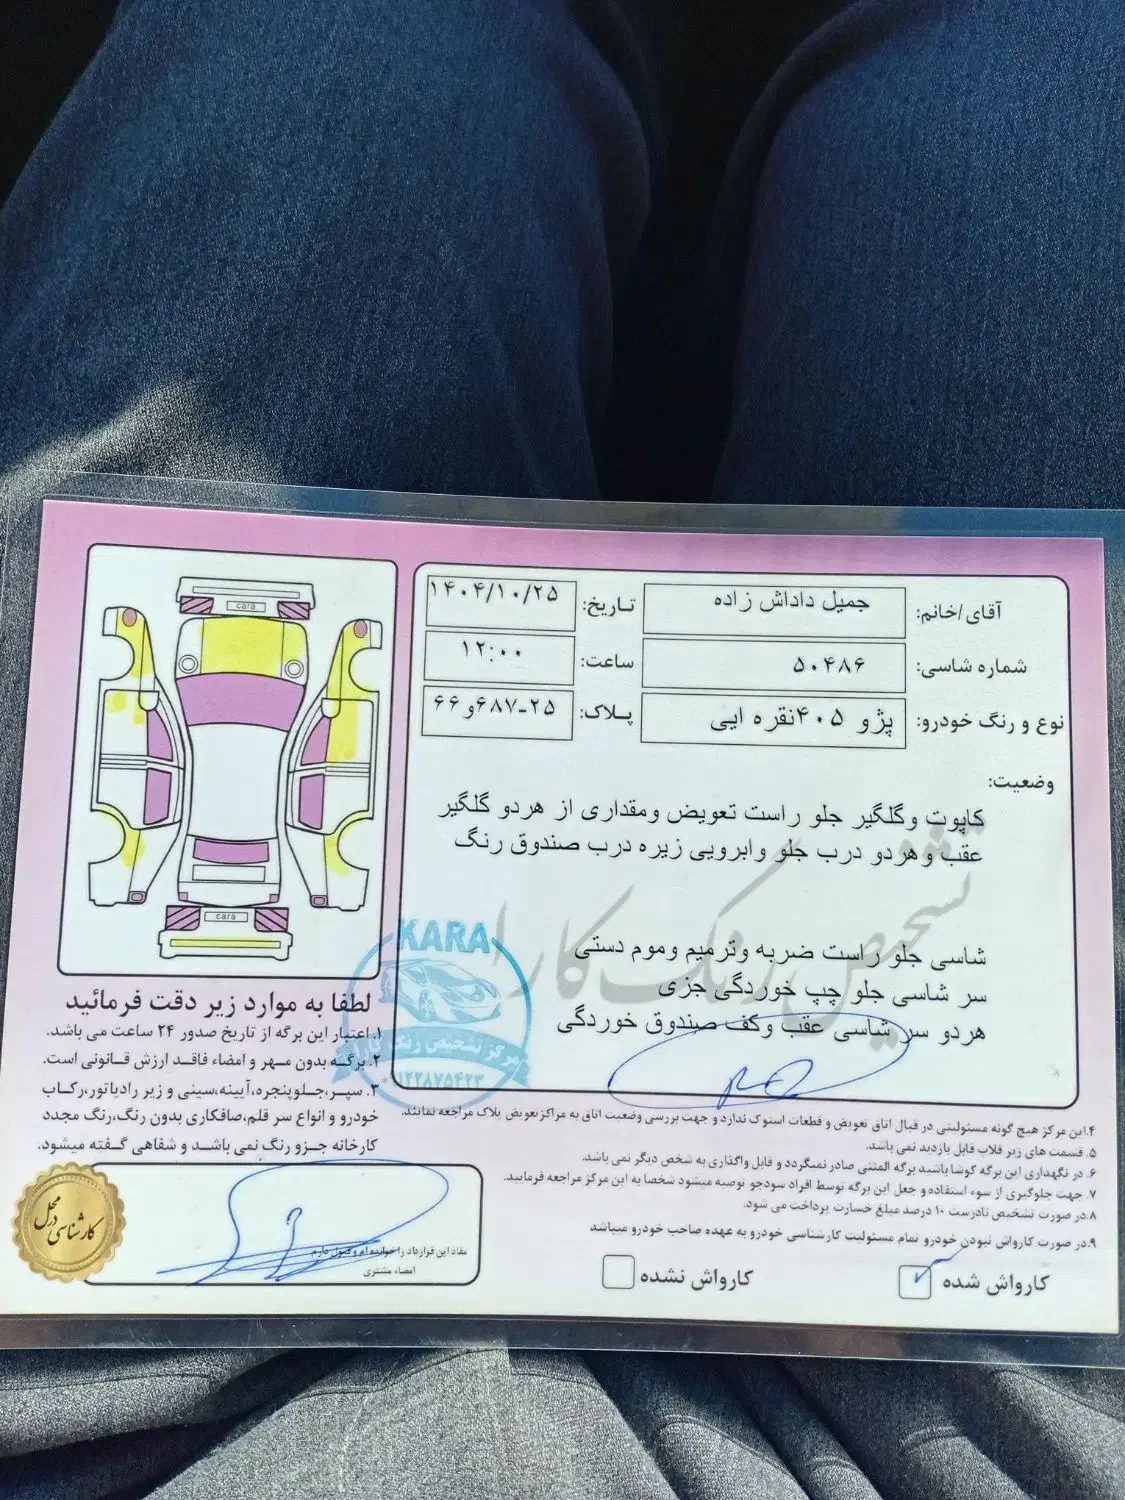 آقای/خانم: جمیل داداش زاده
تاریخ: ۱۴۰۴/۱۰/۲۵
شماره شاسی: ۵۰۴۸۶
ساعت: ۱۲:۰۰
نوع و رنگ خودرو: پژو ۴۰۵نقره ایی
پلاک: ۲۵-۶۸۷و۶۶
وضعیت:
کاپوت وگلگیر جلو راست تعویض ومقداری از هردو گلگیر
عقب وهردو درب جلو وابرویی زیره درب صندوق رنگ
شاسی جلو راست ضربه وترمیم وموم دستی
سر شاسی جلو چپ خوردگی جزی
هردو سر شاسی عقب وکف صندوق خوردگی
تشخیص رنگ کارا
cara
cara
KARA
مرکز تشخیص رنگ
لطفا به موارد زیر دقت فرمائید
۱. اعتبار این برگه از تاریخ صدور ۲۴ ساعت می باشد.
۲. برگه بدون مهر و امضاء فاقد ارزش قانونی است.
۳. سپر،جلوپنجره،آیینه،سینی و زیر رادیاتور،رکاب
خودرو و انواع سر قلم،صافکاری بدون رنگ،رنگ مجدد
کارخانه جزو رنگ نمی باشد و شفاهی گفته میشود.
۴.این مرکز هیچ گونه مسئولیتی در قبال اتاق تعویض و قطعات استوک ندارد و جهت بررسی وضعیت اتاق به مراکز تعویض پلاک مراجعه نمائند.
۵. قسمت های زیر قلاب قابل بازدید نمی باشد.
۶. در نگهداری این برگه کوشا باشید برگه المثنی صادر نمیگردد و قابل واگذاری به شخص دیگر نمی باشد.
۷. جهت جلوگیری از سوء استفاده و جعل این برگه توسط افراد سودجو توصیه میشود شخصا به این مرکز مراجعه فرمایید.
۸.در صورت تشخیص نادرست ۱۰ درصد مبلغ خسارت پرداخت می شود.
۹.در صورت کارواش نبودن خودرو تمام مسئولیت کارشناسی خودرو به عهده صاحب خودرو میباشد
کارواش شده
کارواش نشده
مفاد این قرارداد را خوانده ام و قبول دارم
امضاء مشتری
کارشناسی در محل